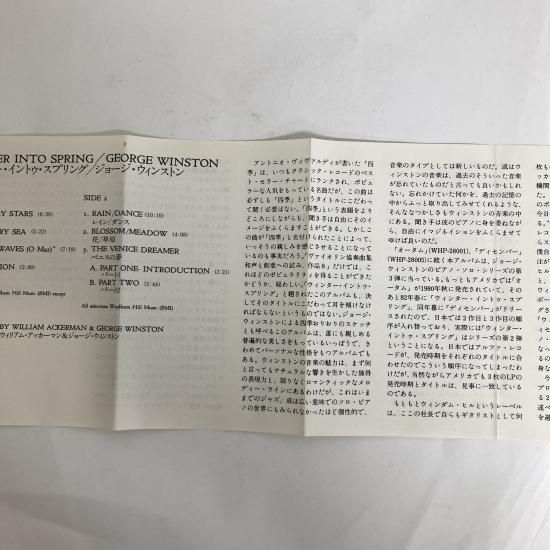 ER INTO SPRING/GEORGE WINSTON
ー・イントゥ・スプリング/ジョージ・ウィンストン
Y STARS (6:38)
RY SEA (5:22)
WAVES (O Mar)* (7:19)
ION (2:49)
lham Hill Music (BMI) except
SIDE 2
1. RAIN/DANCE (10:10)
レイン/ダンス
2. BLOSSOM/MEADOW (4:08)
花/草原
3. THE VENICE DREAMER
ベニスの夢
A. PART ONE- INTRODUCTION (2:22)
パート1
B. PART TWO (5:44)
パート2
All selections Windham Hill Music (BMI)
BY WILLIAM ACKERMAN & GEORGE WINSTON
ウィリアム・アッカーマン&ジョージ・ウィンストン
アントニオ・ヴィヴァルディが書いた「四
季」は、いつもクラシック・レコードのベス
ト・セラー・チャートにランクされ、ポピュ
ラーな人気をもっている名曲だが、この曲は
必ずしも「四季」というタイトルにこだわっ
て聞く必要はない。「四季」という表題をよ
りどころにしながらも、聞き手は自由にそのイ
メージをふくらますことができる。しかしこ
の曲が「四季」と名付けられたことによって、
いっそうの親しみを感じさせることになって
いるのも事実だろう。「ヴァイオリン協奏曲集
和声と創意への試み、作品8」だけでは、こ
れほどのポピュラリティを得ることができた
かどうか、疑わしい。「ウィンター・イントゥ・
スプリング」と題されたこのアルバムも、決
してそのタイトルにこだわって耳を傾けなけ
ればならないというものではない。ジョージ・
ウィンストンによる四季おりおりのスケッチ
とも呼べるこのアルバムは、誰にも親しめる
普遍的な美しさをもっているいっぽうで、き
わめてパーソナルな性格をもつアルバムでも
ある。ウィンストンの音楽の魅力は、まず何
と言ってもナチュラルな響きを生かした独得
の表現力と、限りなくロマンティックなメロ
ディー・ラインにあるわけだが、これはいま
までのジャズ、或は広い意味でのソロ・ピア
ノの世界にもみられなかったほど個性的で、
音楽のタイプとしては新しいものだ。或はウ
ィンストンの音楽は、過去のそういった音楽
が忘れていたものだと言っても良いかもしれ
ない。忘れかけていた何かを、過去の記憶の
中からふっと取り出してみせてくれるような、
そんななつかしさもウィンストンの音楽の中
にはある。聞き手は彼のピアノに身を委ねなが
ら、自由にイマジネイションをふくらませて
ゆけば良いのだ。
「オータム」(WHP-28001)、「ディセンバー」
(WHP-28005)に続く本アルバムは、ジョージ・
ウィンストンのピアノ・ソロ・シリーズの第
3弾に当っている。もっともアメリカでは「オ
ータム」が1980年秋に発売されていて、その
あと82年春に「ウィンター・イントゥ・スプ
リング」、同年暮に「ディセンバー」がリリー
スされたので、日本では2作目と3作目の順
序が入れ替っており、実際には「ウィンター・
イントゥ・スプリング」はシリーズの第2弾
ということになる。日本ではアルファ・レコ
ードが、発売時期をそれぞれのタイトルに合
わせたのでこういう順序になってしまったわ
けだが、当然ながらアメリカでも3枚のLPの
発売時期とタイトルは、見事に一致している
のである。
もともとウィンダム・ヒルというレーベル
は、ここの社長で自らもギタリストとして何
枚も
アッカ
機関